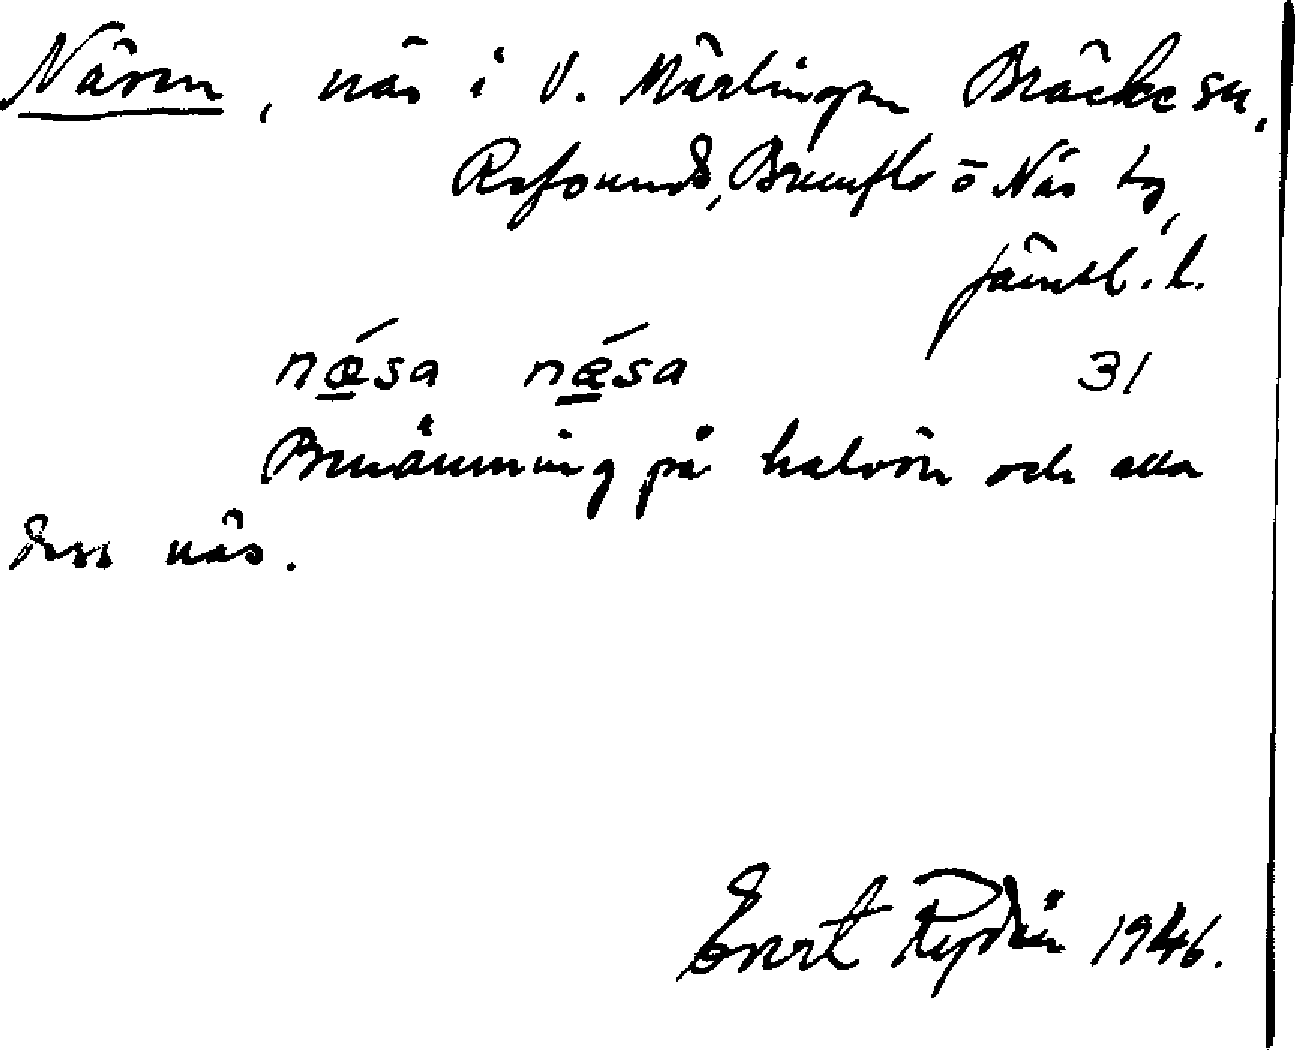 Näsen, näs i V. Mårtingen Bräcke sn,
Refsunds, Brunflo o Näs tg,
Jämtl. l.
nǽsa nǽsa 31
Benämning på halvön och alla
dess näs.
Evert Rydén 1946.